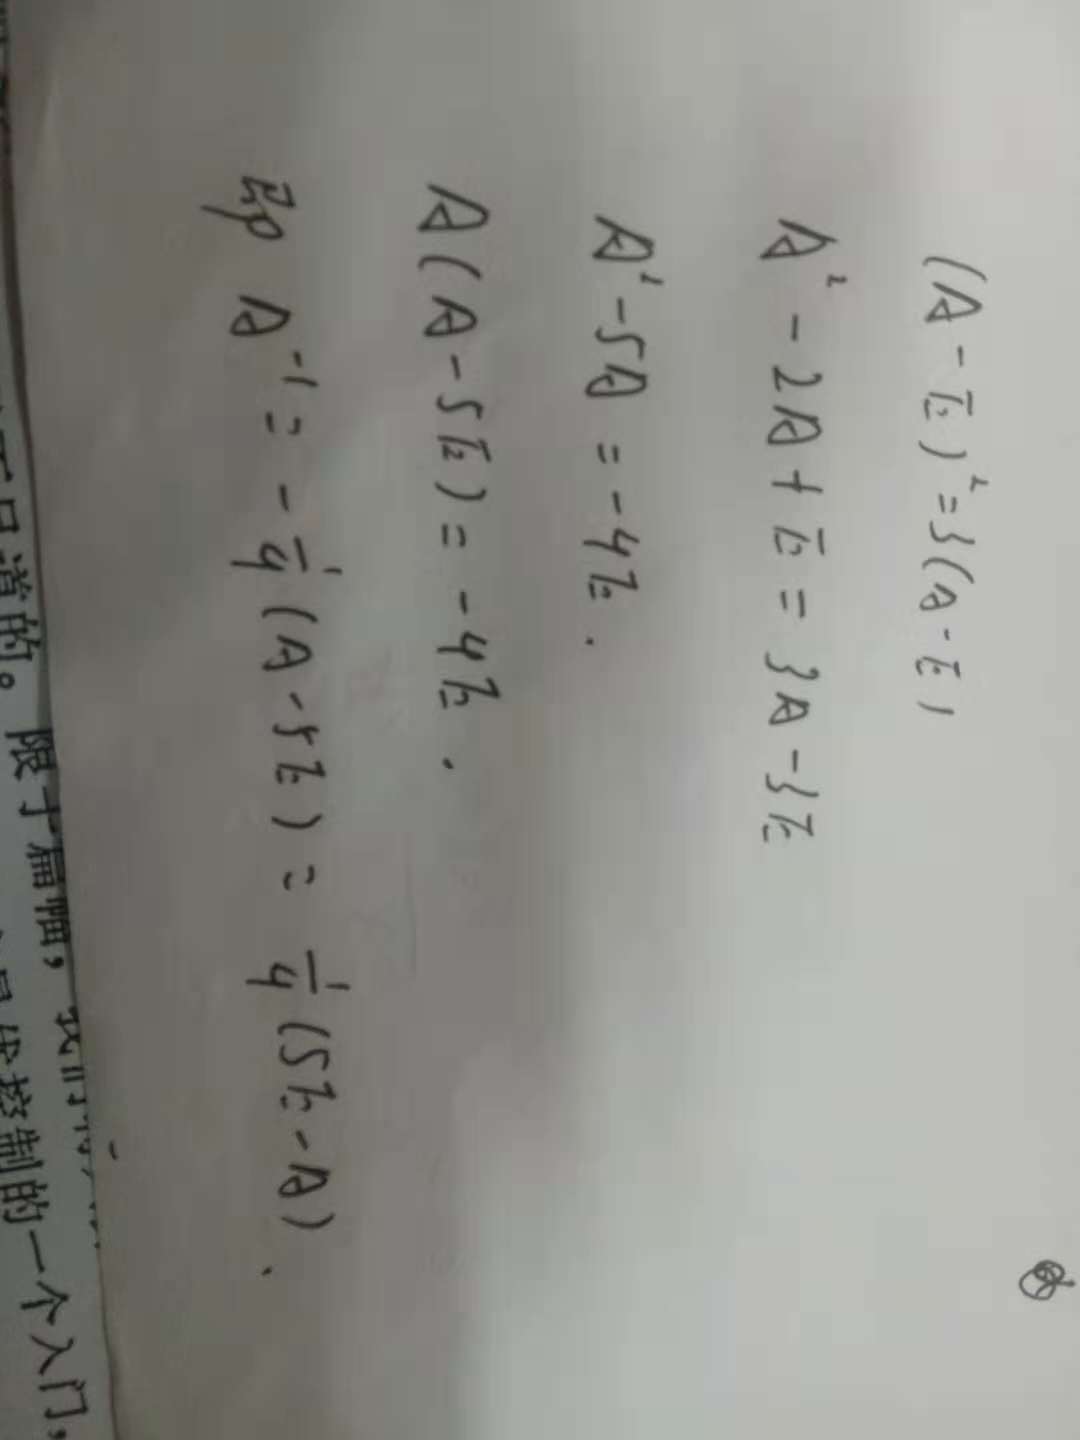 (A-E)²=3(A-E)
A²-2A+E=3A-3E
A²-5A=-4E.
A(A-5E)=-4E.
即 A⁻¹=-1/4(A-5E)=1/4(5E-A).
道的。限于篇幅，我们
控制的一个入门，